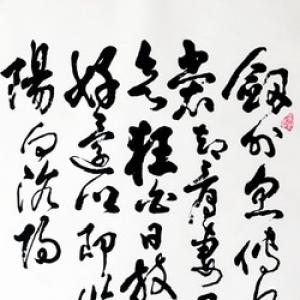 劍外忽傳
裳却看妻
欲狂白日放
好還鄉即
陽向洛陽